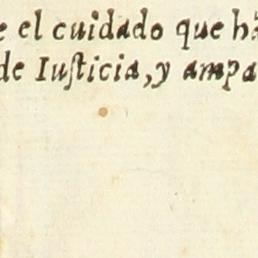 e el cuidado que ha
de Iuſticia, y ampa